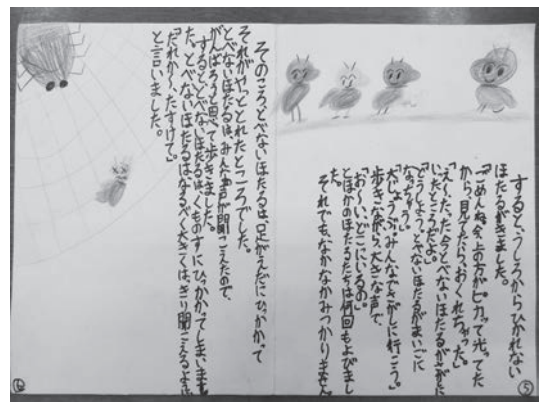 すると、うしろからひかれない
ほたるがきました。
「ごめんね、今、上の方がピカって光ってた
から、見てたら、おくれちゃった。」
「え〜、たった今とべないほたるがさがしに
いったところだよ。」
「どうしよう、とべないほたるがまいごに
なっちゃう。」
「大じょうぶ、みんなでさがしに行こう。」
歩きながら、大きな声で、
「お〜い、どこにいるの」
とほかのほたるたちは何回もよびまし
た。
それでも、なかなかみつかりません
⑤
そのころ、とべないほたるは、足がえだにひっかかって
それがやっととれたところでした。
とべないほたるは、みんなの声が聞こえたので、
がんばろうと思って歩きました。
するととべないほたるは、くものすにひっかかってしまいまし
た。とべないほたるはなるべく大きくはっきり聞こえるように
「だれか、たすけて」
と言いました。
⑥